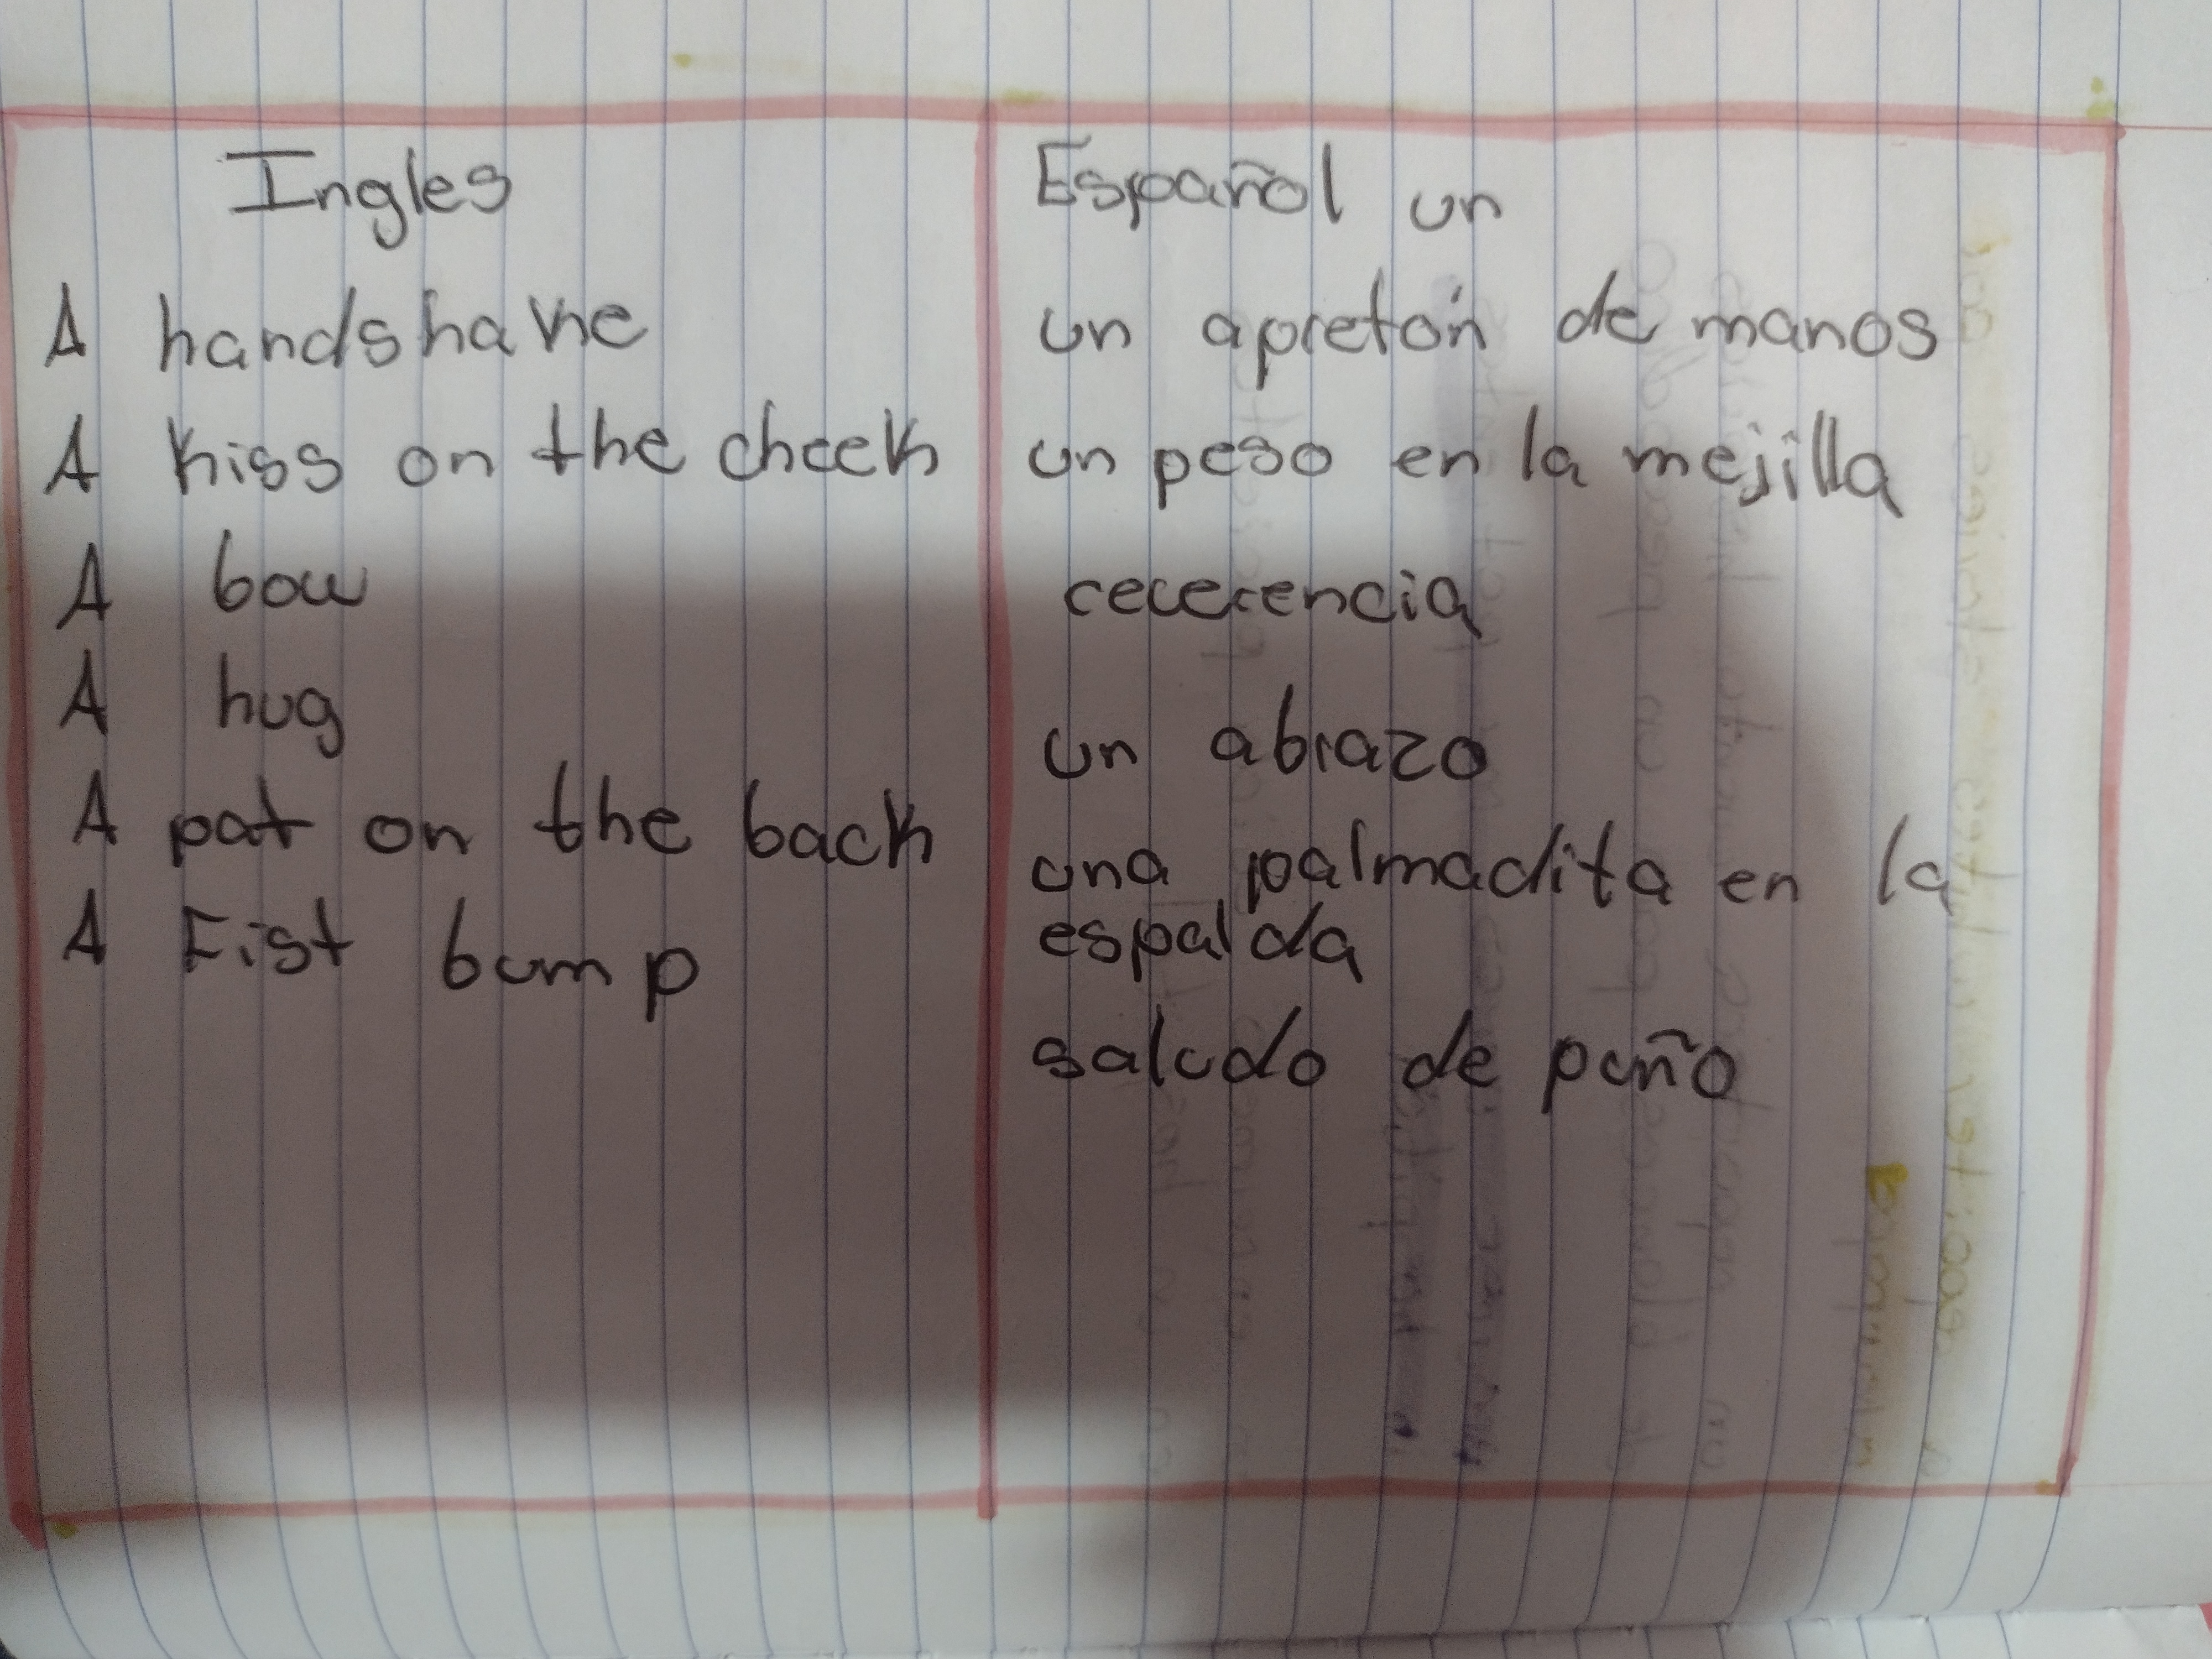 Ingles
A handshake
A kiss on the cheek
A bow
A hug
A pat on the back
A Fist bump
Español un
un apretón de manos
un peso en la mejilla
recerencia
un abrazo
una palmadita en la
espalda
saludo de puño